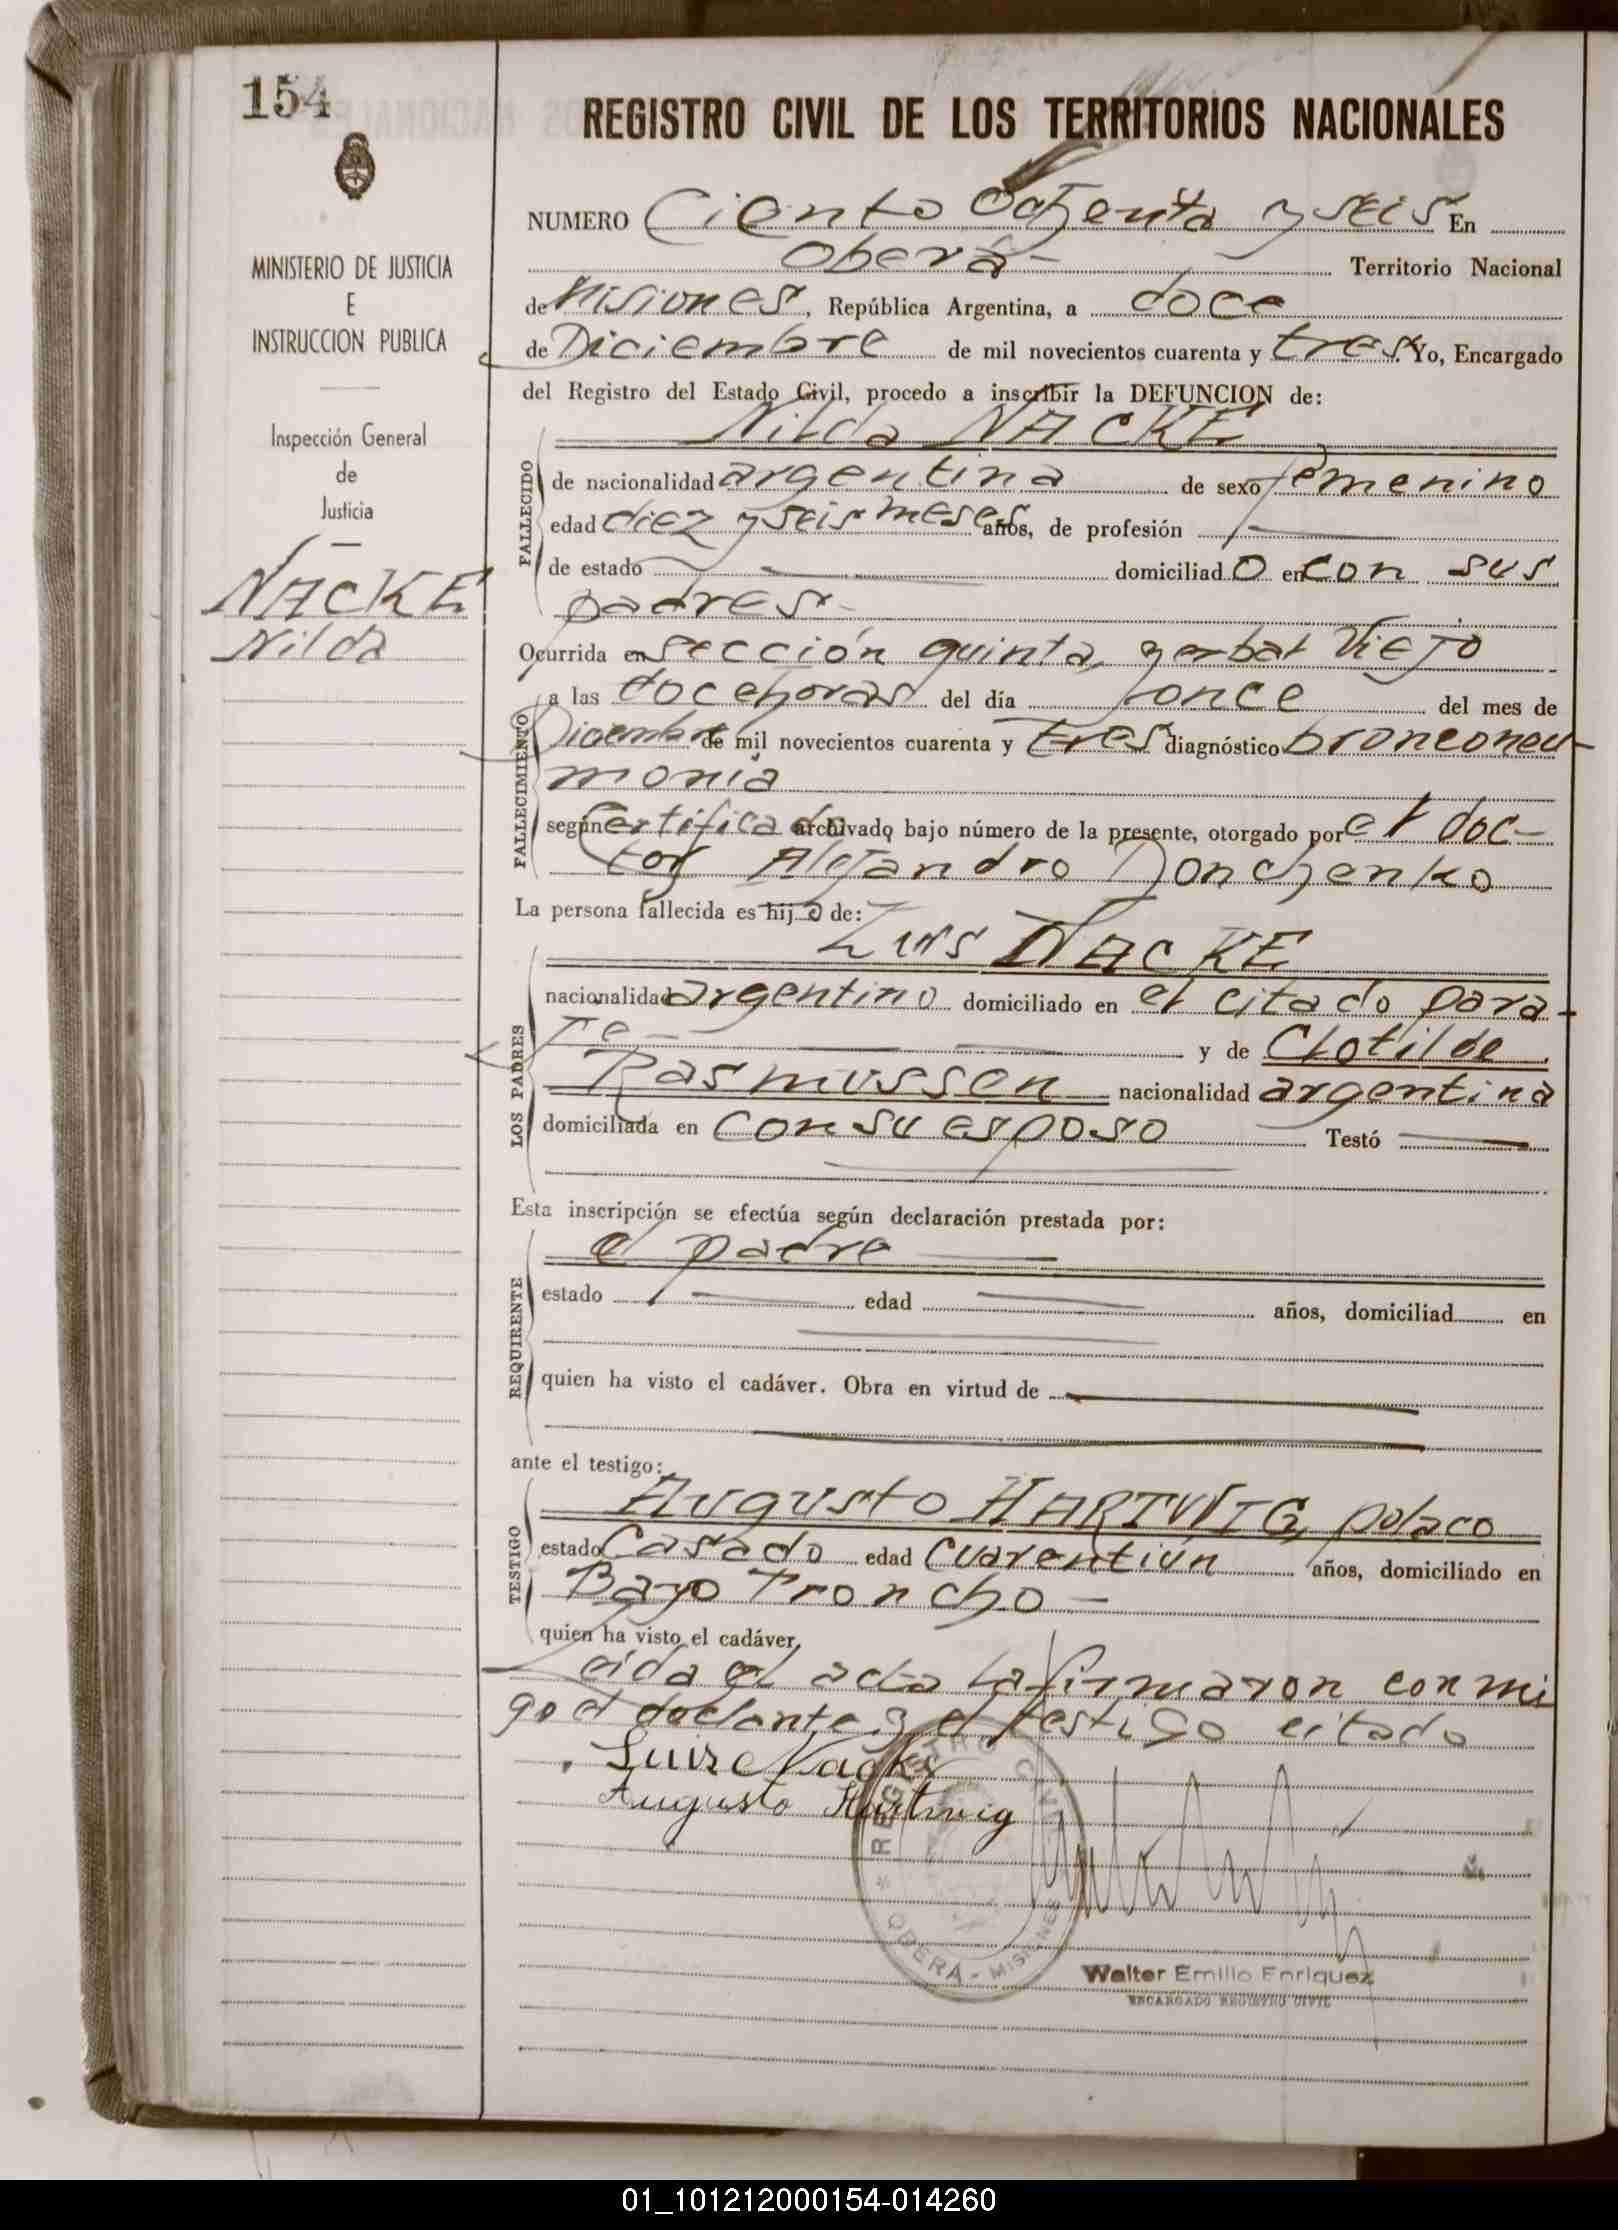 154
REGISTRO CIVIL DE LOS TERRITORIOS NACIONALES
MINISTERIO DE JUSTICIA
E
INSTRUCCION PUBLICA
Inspección General
de
Justicia
NACKE
Nilda
NUMERO Ciento Ochenta y seis En
Oberá - Territorio Nacional
de Misiones, República Argentina, a doce
de Diciembre de mil novecientos cuarenta y tres. Yo, Encargado
del Registro del Estado Civil, procedo a inscribir la DEFUNCION de:
Nilda NACKE
FALLECIDO
de nacionalidad argentina de sexo femenino
edad diez y seis meses años, de profesión
de estado domiciliado en con sus
padres -
Ocurrida en sección quinta, yerbal Viejo
FALLECIMIENTO
a las doce horas del día once del mes de
Diciembre de mil novecientos cuarenta y tres diagnóstico bronconeu-
monia
según certificado archivado bajo número de la presente, otorgado por el doc-
tor Alejandro Donchenko
La persona fallecida es hijo de:
Luis NACKE
LOS PADRES
nacionalidad argentino domiciliado en el citado para-
je - y de Clotilde
Rasmussen nacionalidad argentina
domiciliada en con su esposo Testó
Esta inscripción se efectúa según declaración prestada por:
el padre
REQUIRENTE
estado edad años, domiciliad en
quien ha visto el cadáver. Obra en virtud de
ante el testigo:
Augusto HARTWIG, polaco
TESTIGO
estado Casado edad cuarentiún años, domiciliado en
Bayo Troncho -
quien ha visto el cadáver,
Leida el acta la firmaron conmi
go el y el testigo citado
Luis Nacke
Augusto Hartwig
REGISTRO CIVIL
OBERA - MISIONES
Walter Emilio Enriquez
ENCARGADO REGISTRO CIVIL
01_101212000154-014260